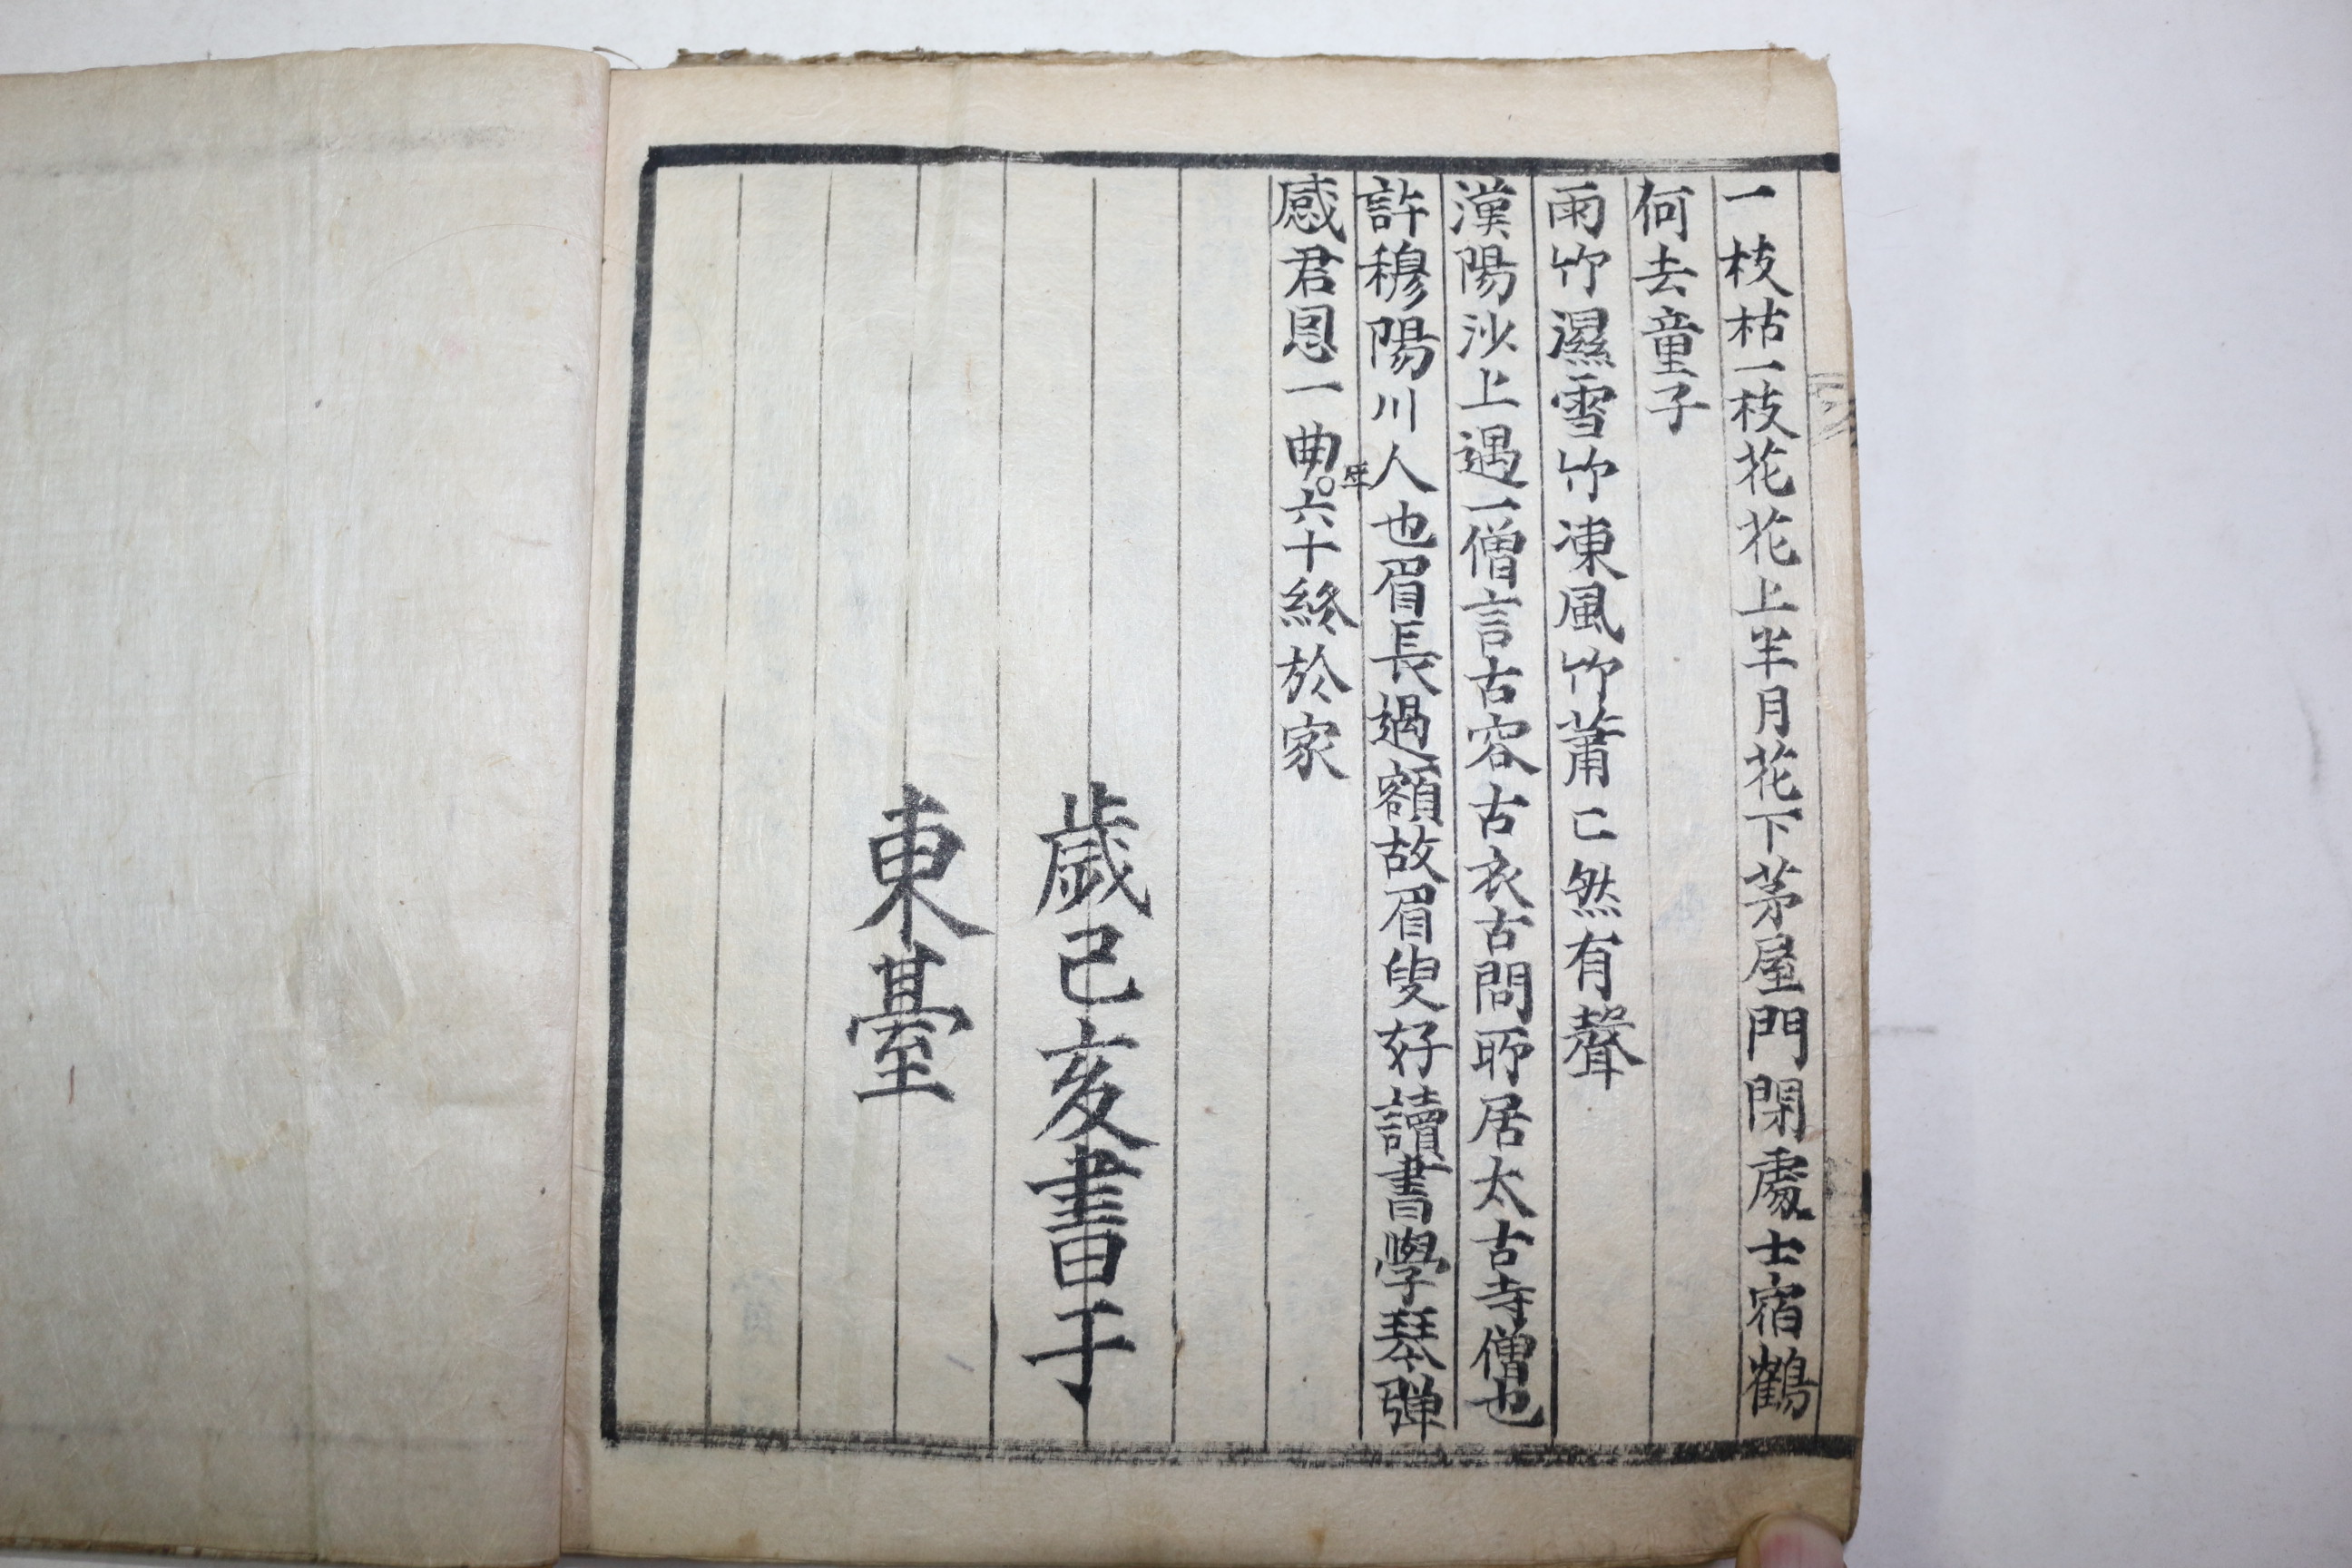 一枝枯一枝花花上半月花下茅屋門閉處士宿鶴
何去童子
雨竹濕雪竹凍風竹蕭已然有聲
漢陽沙上遇一僧言古容古衣古問所居太古寺僧也
許穆陽川人也眉長過額故眉叟好讀書學琴弾
感君恩一曲年六十終於家
歲己亥書于
東臺